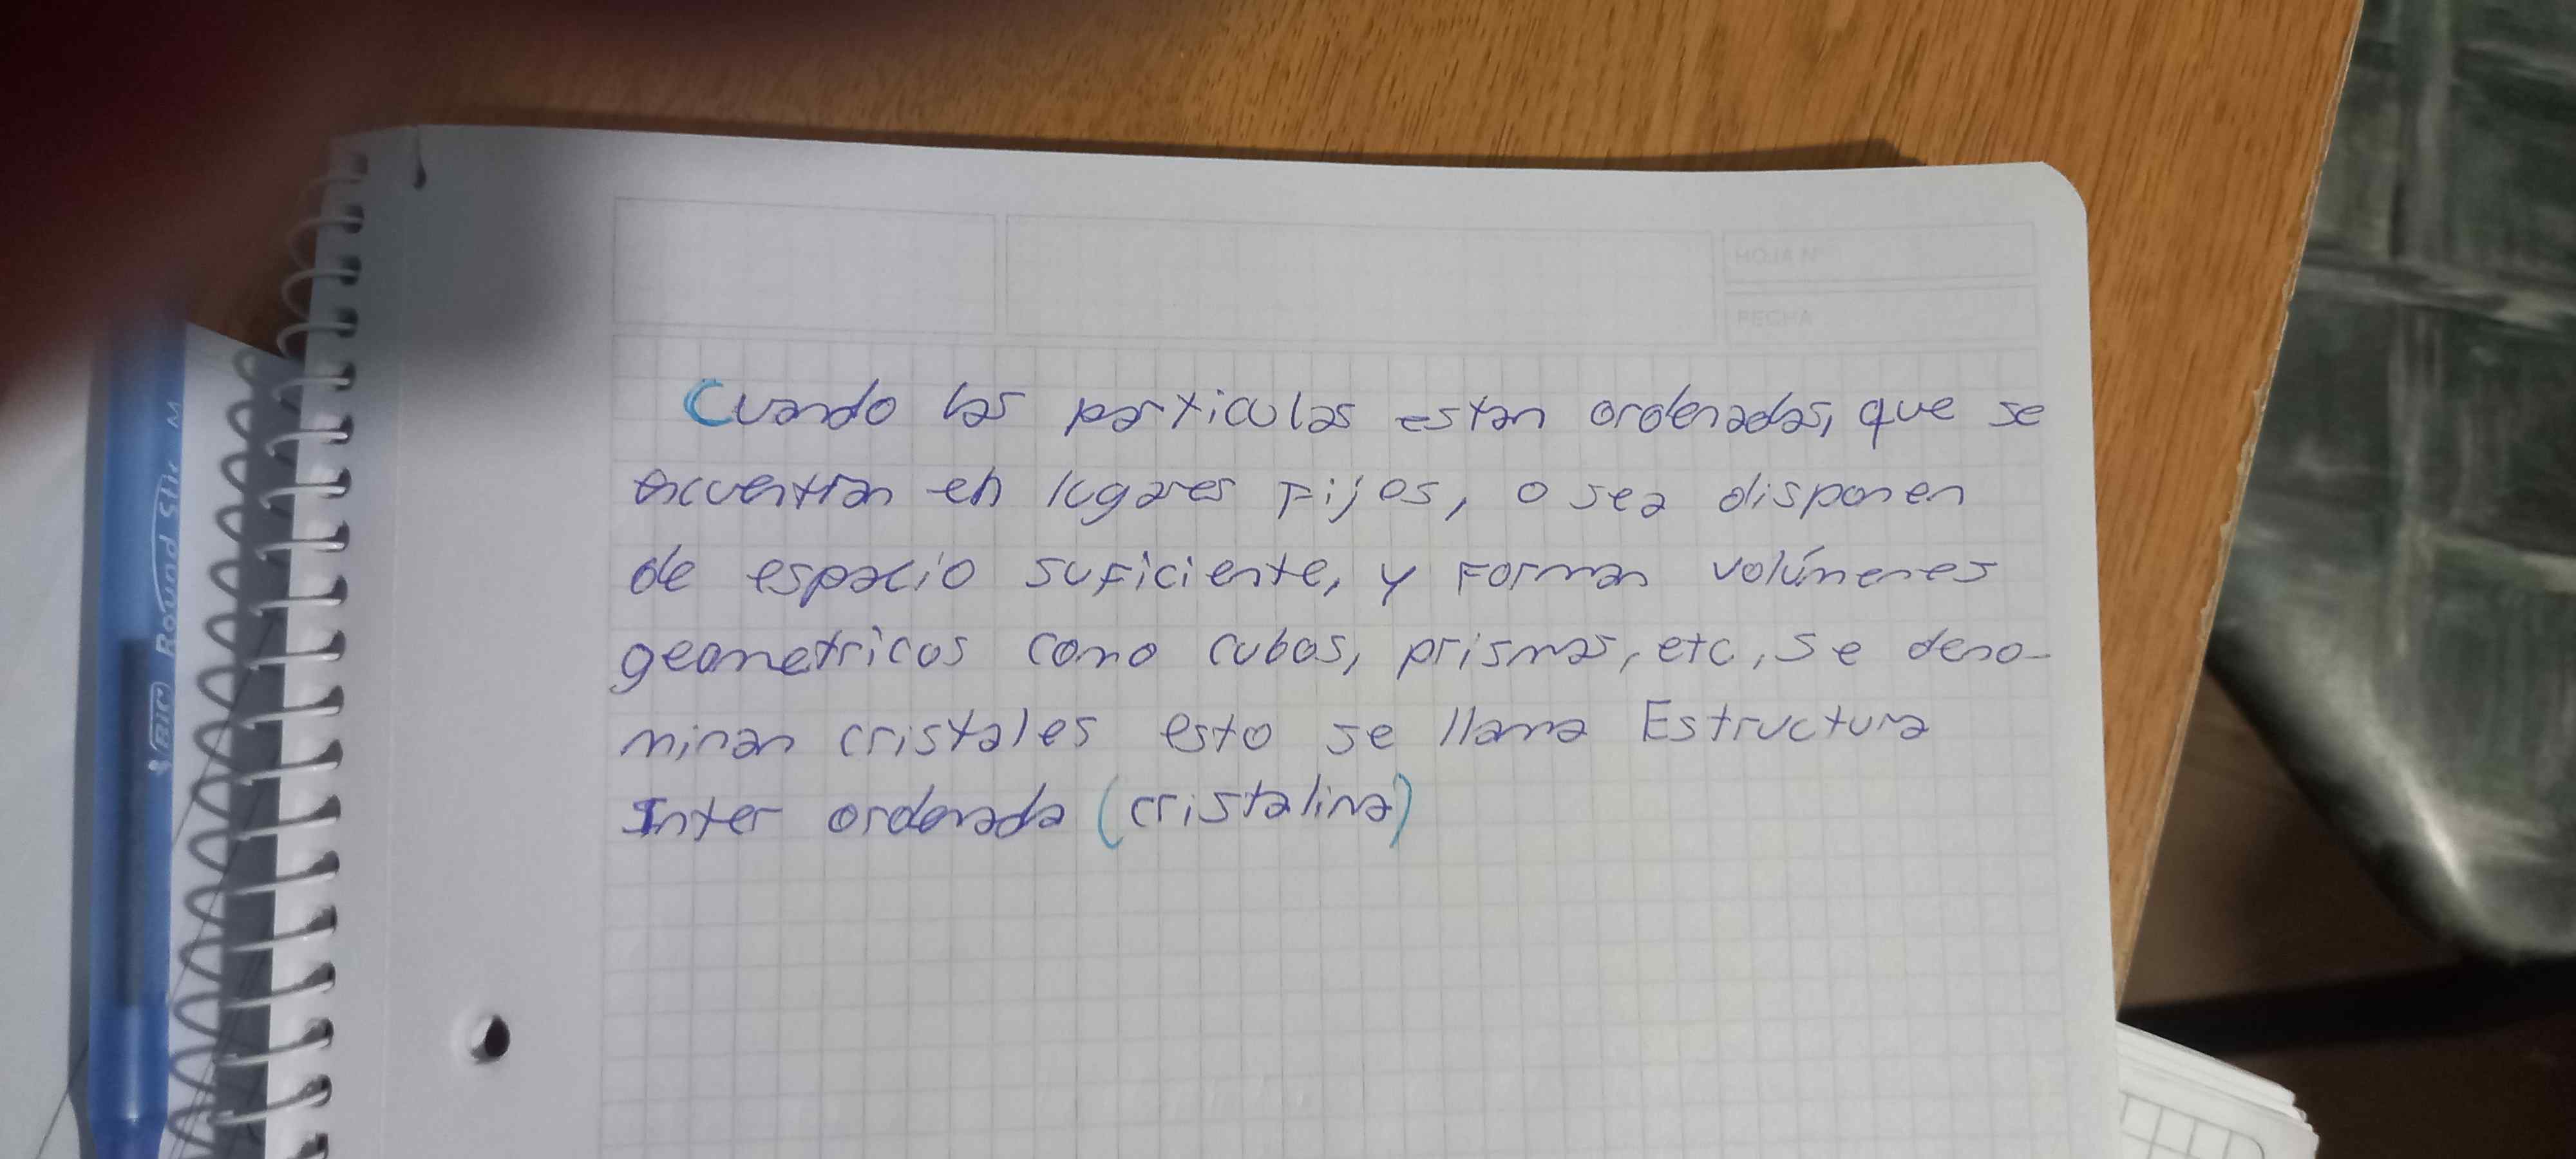 HOJA N°
FECHA
Cuando las particulas estan ordenadas, que se
encuentran en lugares fijos, o sea disponen
de espacio suficiente, y forman volúmenes
geometricos como cubos, prismas, etc, se deno-
minan cristales esto se llama Estructura
Inter ordenada (cristalina)
BIC Round Stic M